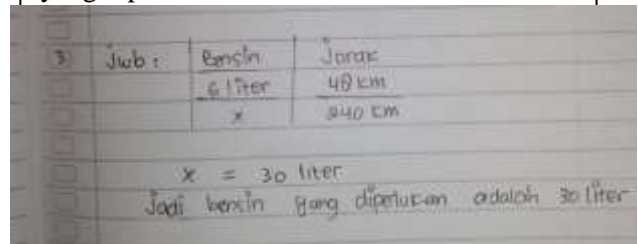 3) Jwb : Bensin Jarak
6 liter 48 km
x 240 km
x = 30 liter
Jadi bensin yang diperlukan adalah 30 liter